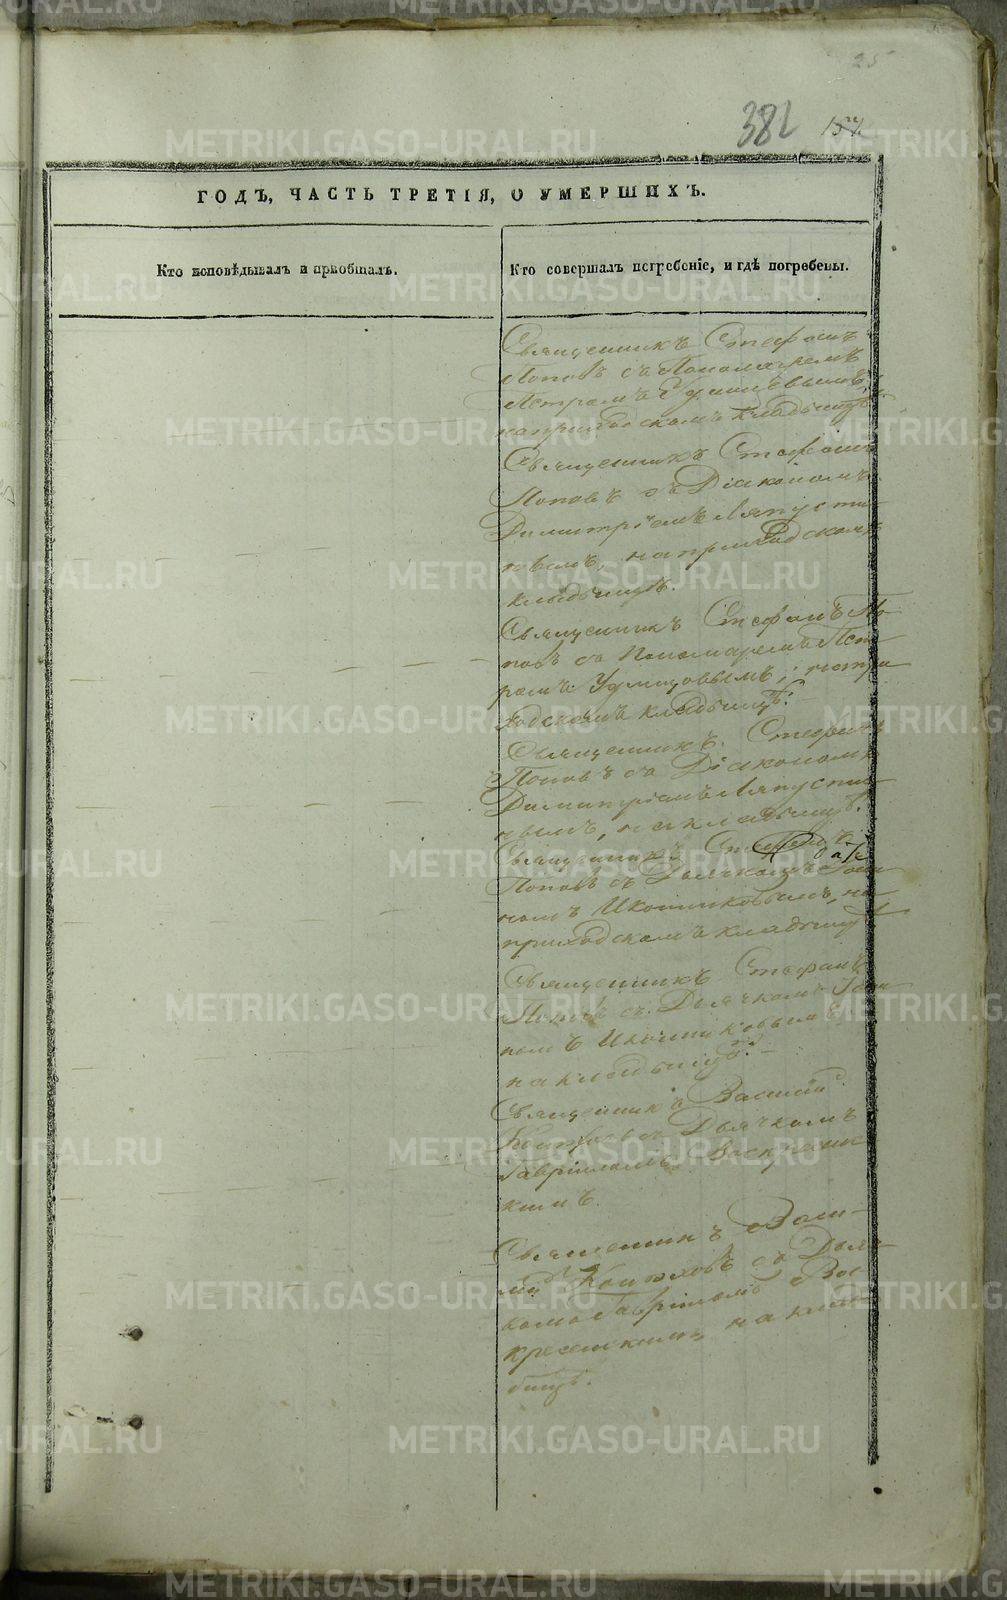 25
382
METRIKI.GASO-URAL.RU
ГОДЪ, ЧАСТЬ ТРЕТІЯ, О УМЕРШИХЪ.
Кто исповѣдывалъ и пріобщалъ.
Кто совершалъ погребеніе, и гдѣ погребены.
Священникъ Стефанъ
Поповъ съ Пономаремъ
Петромъ
на приходскомъ кладбищѣ.
Священникъ Стефанъ
Поповъ съ Діакономъ
Димитріемъ Ляпусти-
нымъ, на приходскомъ
кладбищѣ.
Священникъ Стефанъ По-
повъ съ Пономаремъ Пет-
ромъ Удинцовымъ, на при-
ходскомъ кладбищѣ.
Священникъ Стефанъ
Поповъ съ Діакономъ
Димитріемъ Ляпусти-
нымъ, на кладбищѣ.
Священникъ Стефанъ
Поповъ съ Дьячкомъ Іоан-
номъ Иконниковымъ, на
приходскомъ кладбищѣ
Священникъ Стефанъ
Поповъ съ Дьячкомъ Іоан-
номъ Иконниковымъ
на кладбищѣ.
Священникъ Василій
съ Дьячкомъ
Гавріиломъ Воскресенс-
кимъ.
Священникъ Васи-
лій съ Дьяч-
комъ Гавріиломъ Вос-
кресенскимъ на клад-
бищѣ.